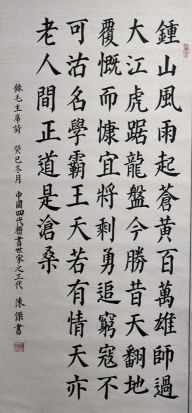 鍾山風雨起蒼黄百萬雄師過
大江虎踞龍盤今勝昔天翻地
覆慨而慷宜將剩勇追窮寇不
可沽名學霸王天若有情天亦
老人間正道是滄桑
錄毛主席詩 癸巳冬月 中國四代楷書世家之三代 陳傑書